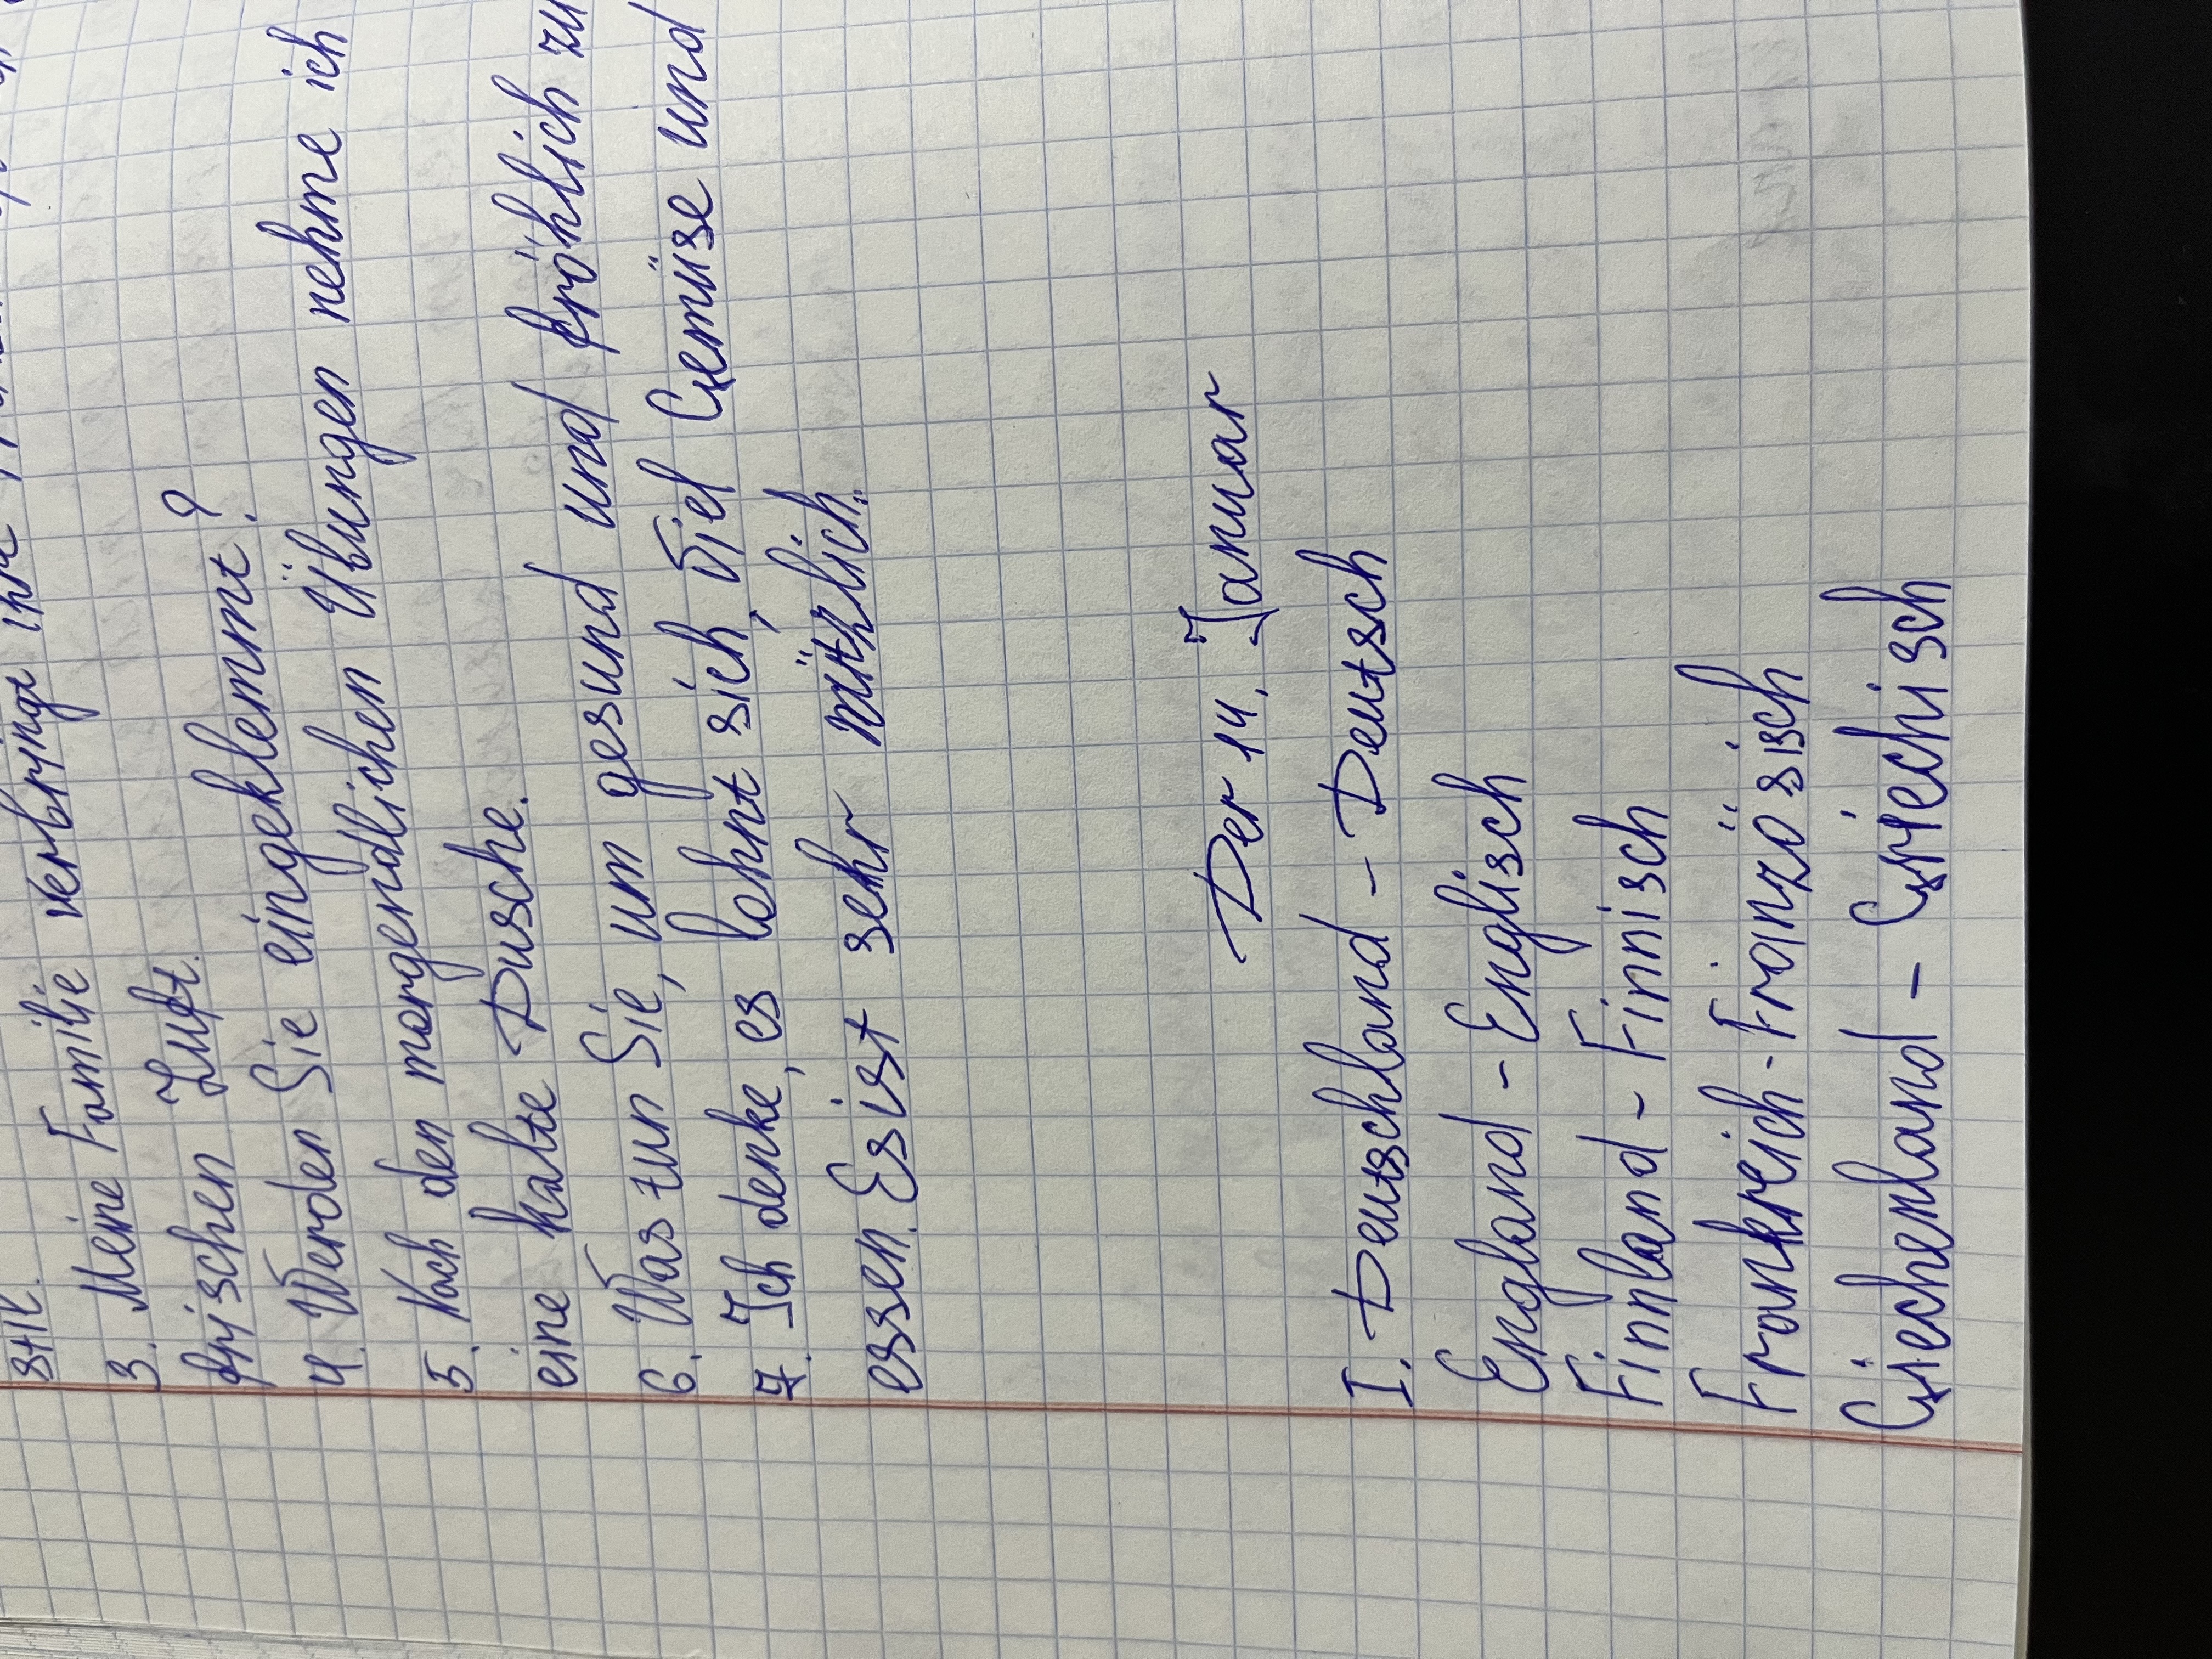 stik.
3. Meine Familie verbringt ihre
frischen Luft.
4. Werden Sie eingeklemmt?
5. Nach den morgendlichen Übungen nehme ich
eine kalte Dusche.
6. Was tun Sie, um gesund und fröhlich zu
7. Ich denke, es lohnt sich, viel Gemüse und
essen. Es ist sehr nützlich.
Der 14. Januar
I. Deutschland - Deutsch
England - Englisch
Finnland - Finnisch
Frankreich - Französisch
Giechenland - Griechisch